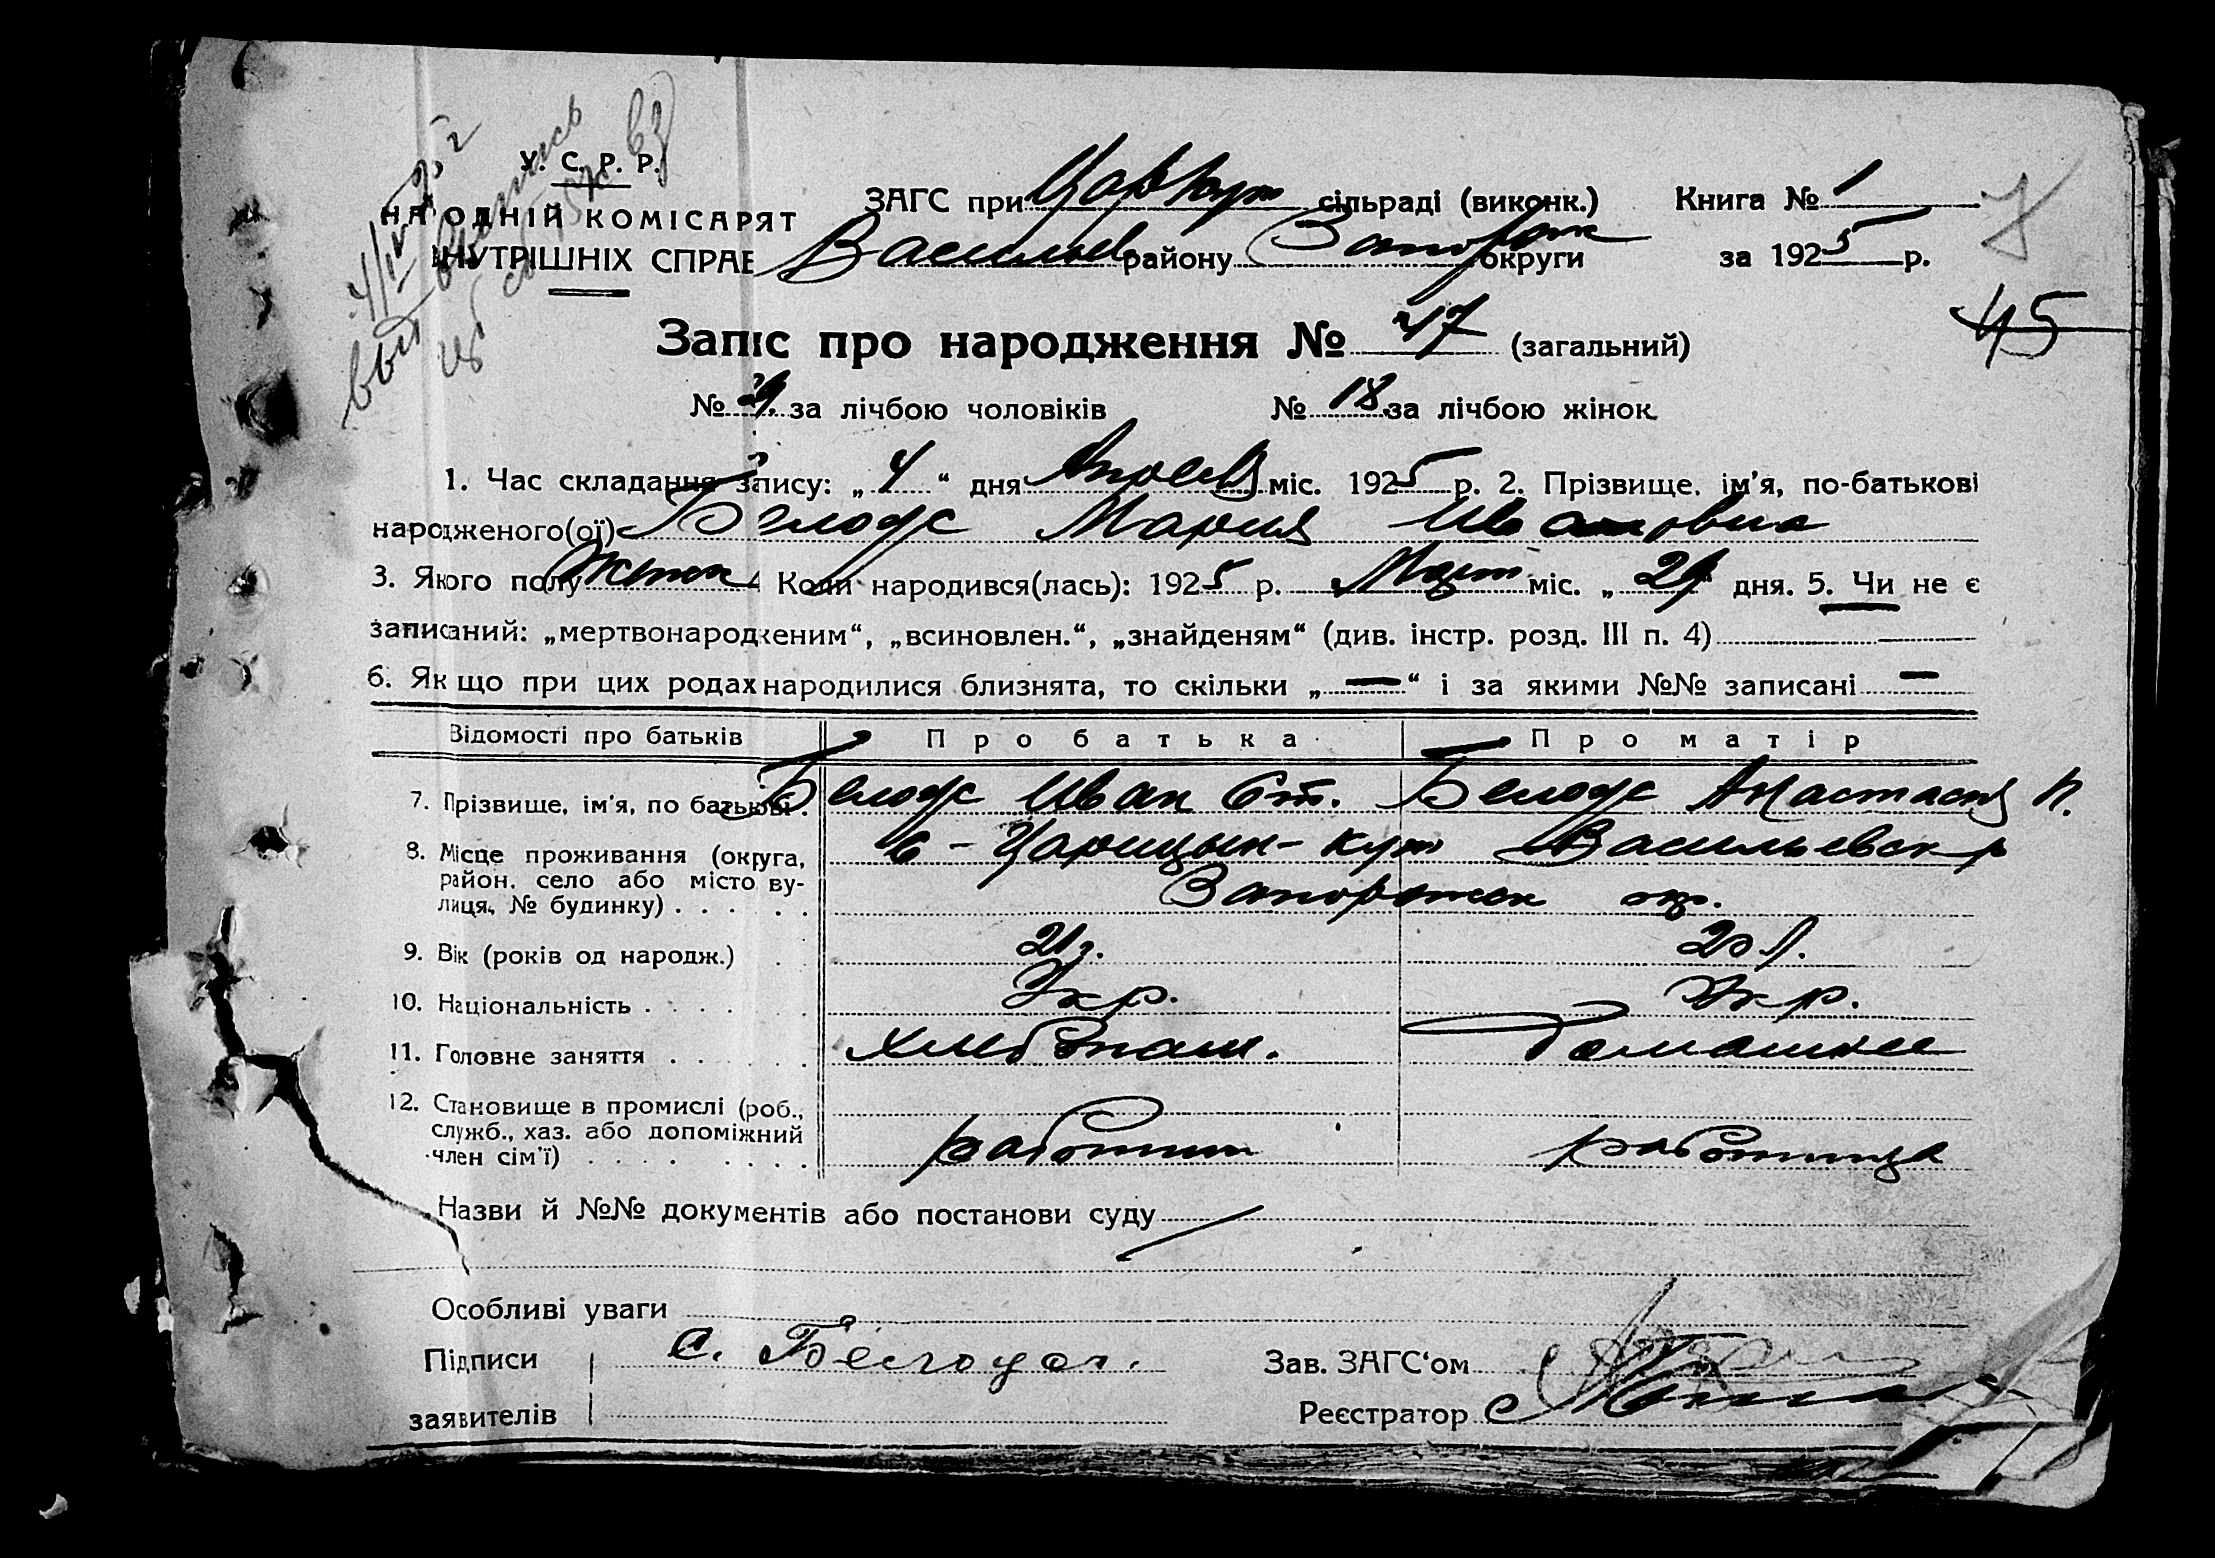 У. С. Р. Р.
НАРОДНІЙ КОМІСАРЯТ
ВНУТРІШНІХ СПРАВ
4/IV 25 г
ЗАГС при Царкут сільраді (виконк.) Книга № 1
Васильев району Запорож округи за 1925 р.
45
Запис про народження № 47 (загальний)
№ за лічбою чоловіків № 18 за лічбою жінок
1. Час складання запису: „ 4 “ дня Апреля міс. 1925 р. 2. Прізвище, ім'я, по-батькові
народженого(ої) Белоус Мария Ивановна
3. Якого полу женск 4 Коли народився(лась): 1925 р. Март міс. „ “ дня. 5. Чи не є
записаний: „мертвонародженим“, „всиновлен.“, „знайденям“ (див. інстр. розд. III п. 4)
6. Якщо при цих родах народилися близнята, то скільки „ — “ і за якими №№ записані —
Відомості про батьків Про батька Про матір
7. Прізвище, ім'я, по батькові . Белоус Иван Ст. Белоус Анастасия П.
8. Місце проживання (округа, район, село або місто, вулиця, № будинку) . . . . . с - Царицын - Кут Васильевск р
Запорожск окр.
9. Вік (років од народж.) . . 21 г. 20 л.
10. Національність . . . . . . Укр. Укр.
11. Головне заняття . . . . . хлебопаш. Домашнее
12. Становище в промислі (роб.,
служб., хаз. або допоміжний
член сім'ї) . . . . . . . . работник работница
Назви й №№ документів або постанови суду
Особливі уваги
Підписи С. Белоус. Зав. ЗАГС'ом
заявителів Реєстратор